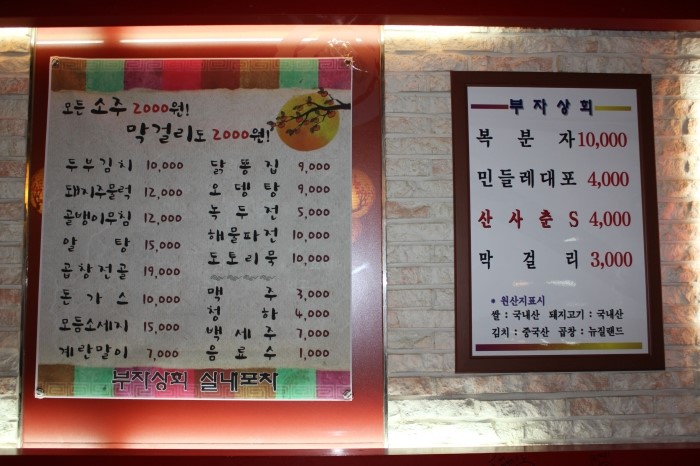 모든 소주 2000원!
막걸리도 2000원!
두부김치 10,000
돼지주물럭 12,000
골뱅이무침 12,000
알탕 15,000
곱창전골 19,000
돈가스 10,000
모듬소세지 15,000
계란말이 7,000
닭똥집 9,000
오뎅탕 9,000
녹두전 5,000
해물파전 10,000
도토리묵 10,000
맥주 3,000
청하 4,000
백세주 7,000
음료수 1,000
부자상회 실내포차
부자상회
복분자 10,000
민들레대포 4,000
산사춘 S 4,000
막걸리 3,000
* 원산지표시
쌀 : 국내산 돼지고기 : 국내산
김치 : 중국산 곱창 : 뉴질랜드